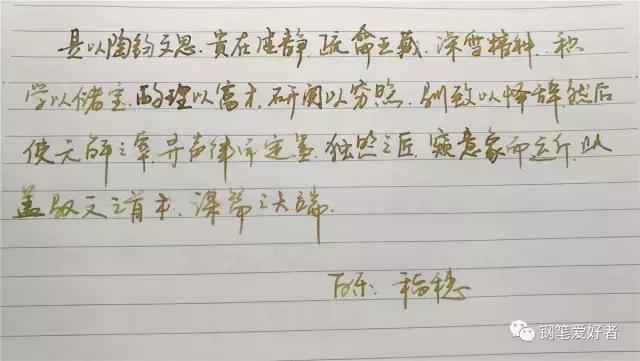 是以陶钧文思.贵在虚静.疏瀹五藏.澡雪精神.积
学以储宝.酌理以富才.研阅以穷照.驯致以怿辞.然后
使元解之宰.寻声律而定墨.独照之匠.窥意象而运斤.此
盖驭文之首术.谋篇之大端.
稻穗
钢笔爱好者